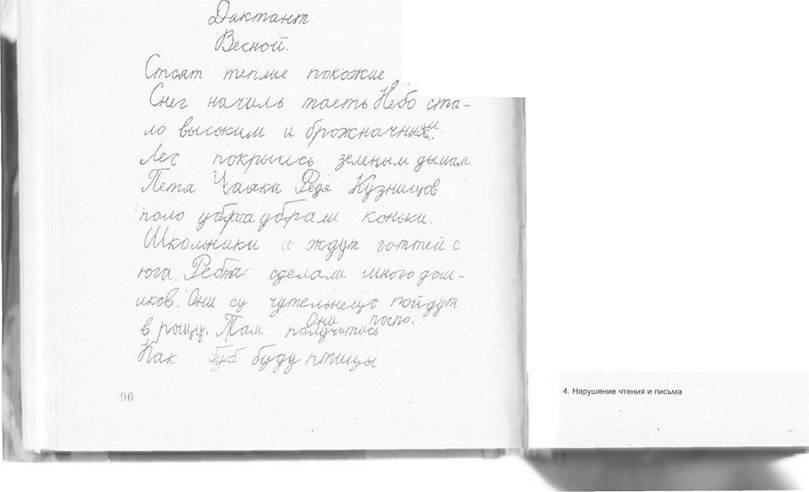 Диктант
Весной.
Стоят теплые похожие
Снег начиль таеть Небо ста-
ло высоким и брожначным.
Лес покрылсь зеленым дымам
Петя Чашки Федя Кузницов
поло убрга убрали коньки.
Школники и ждут готтей с
юга. Ребты сделали много дом-
иков. Они су чутельнещо пойдут
в рощу. Там получитась
Они посло.
Как буб буду птицы
96
4. Нарушение чтения и письма